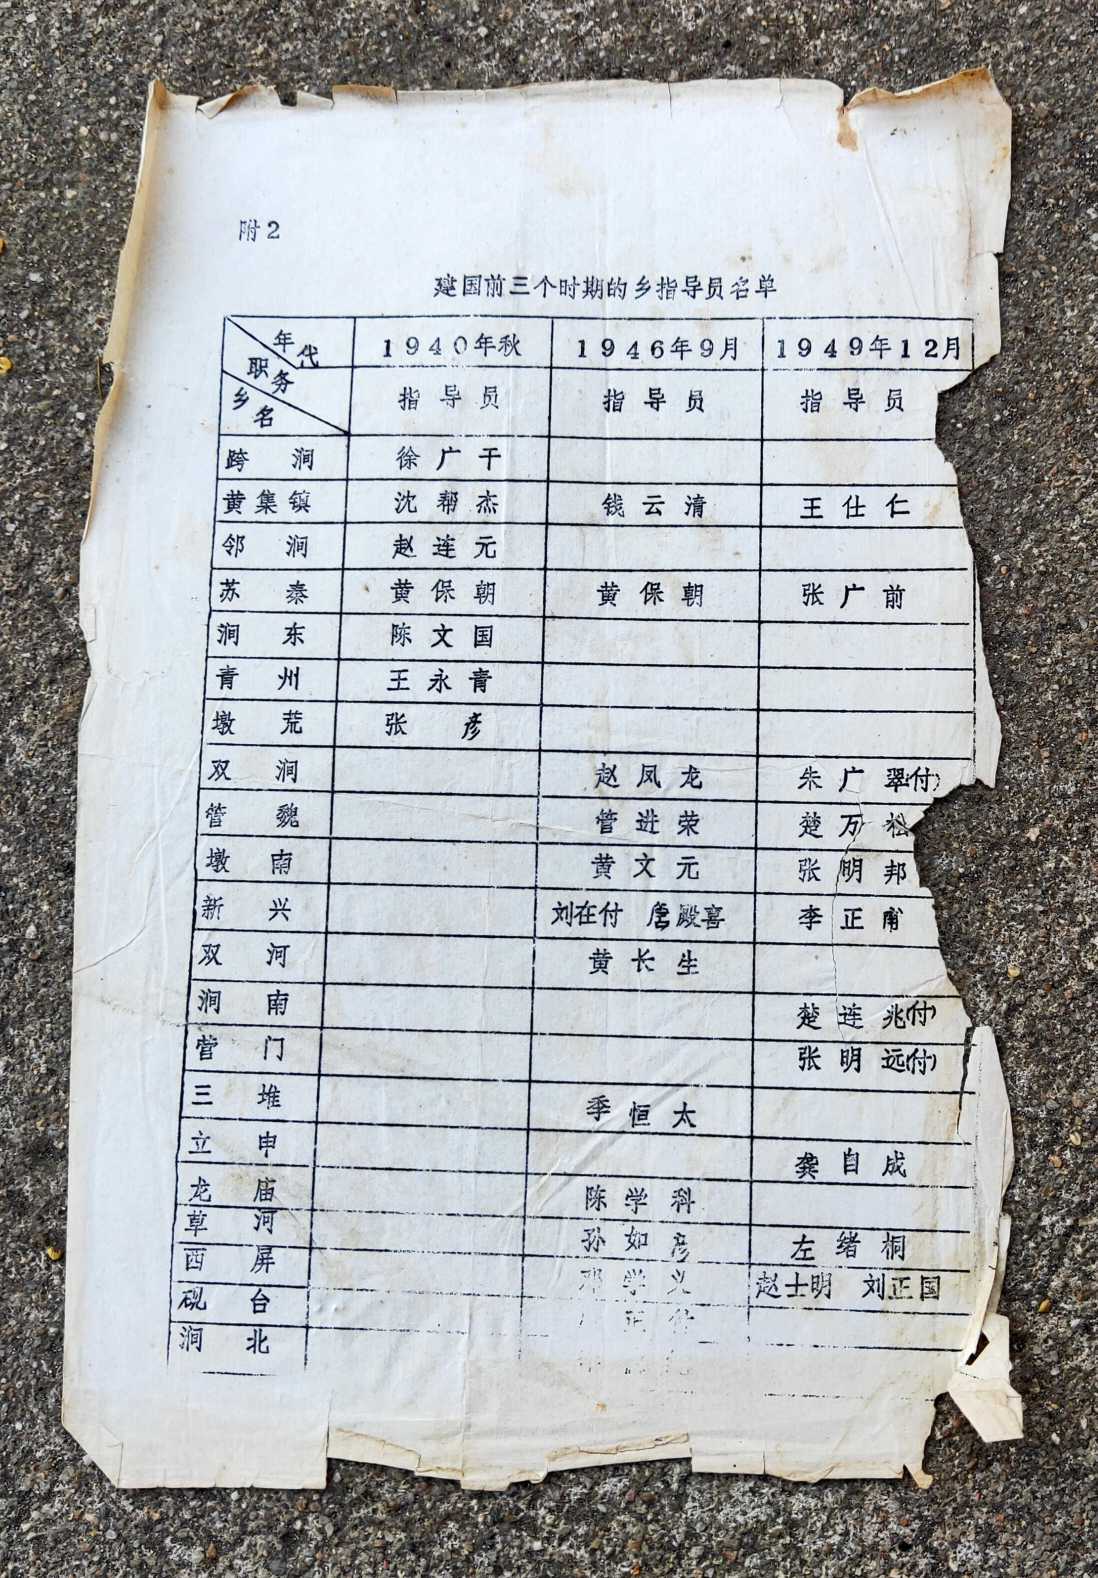 附2
建国前三个时期的乡指导员名单
年代 1940年秋 1946年9月 1949年12月
职务 指导员 指导员 指导员
乡名
跨涧 徐广干
黄集镇 沈帮杰 钱云清 王仕仁
邻涧 赵连元
苏秦 黄保朝 黄保朝 张广前
涧东 陈文国
青州 王永青
墩荒 张彦
双涧 赵凤龙 朱广翠(付)
管魏 管进荣 楚万松
墩南 黄文元 张明邦
新兴 刘在付 唐殿喜 李正甫
双河 黄长生
涧南 楚连兆(付)
营门 张明远(付)
三堆 季恒太
立申 龚自成
龙庙 陈学科
草河 孙如彦 左绪桐
西屏 邓学义 赵士明 刘正国
砚台
涧北